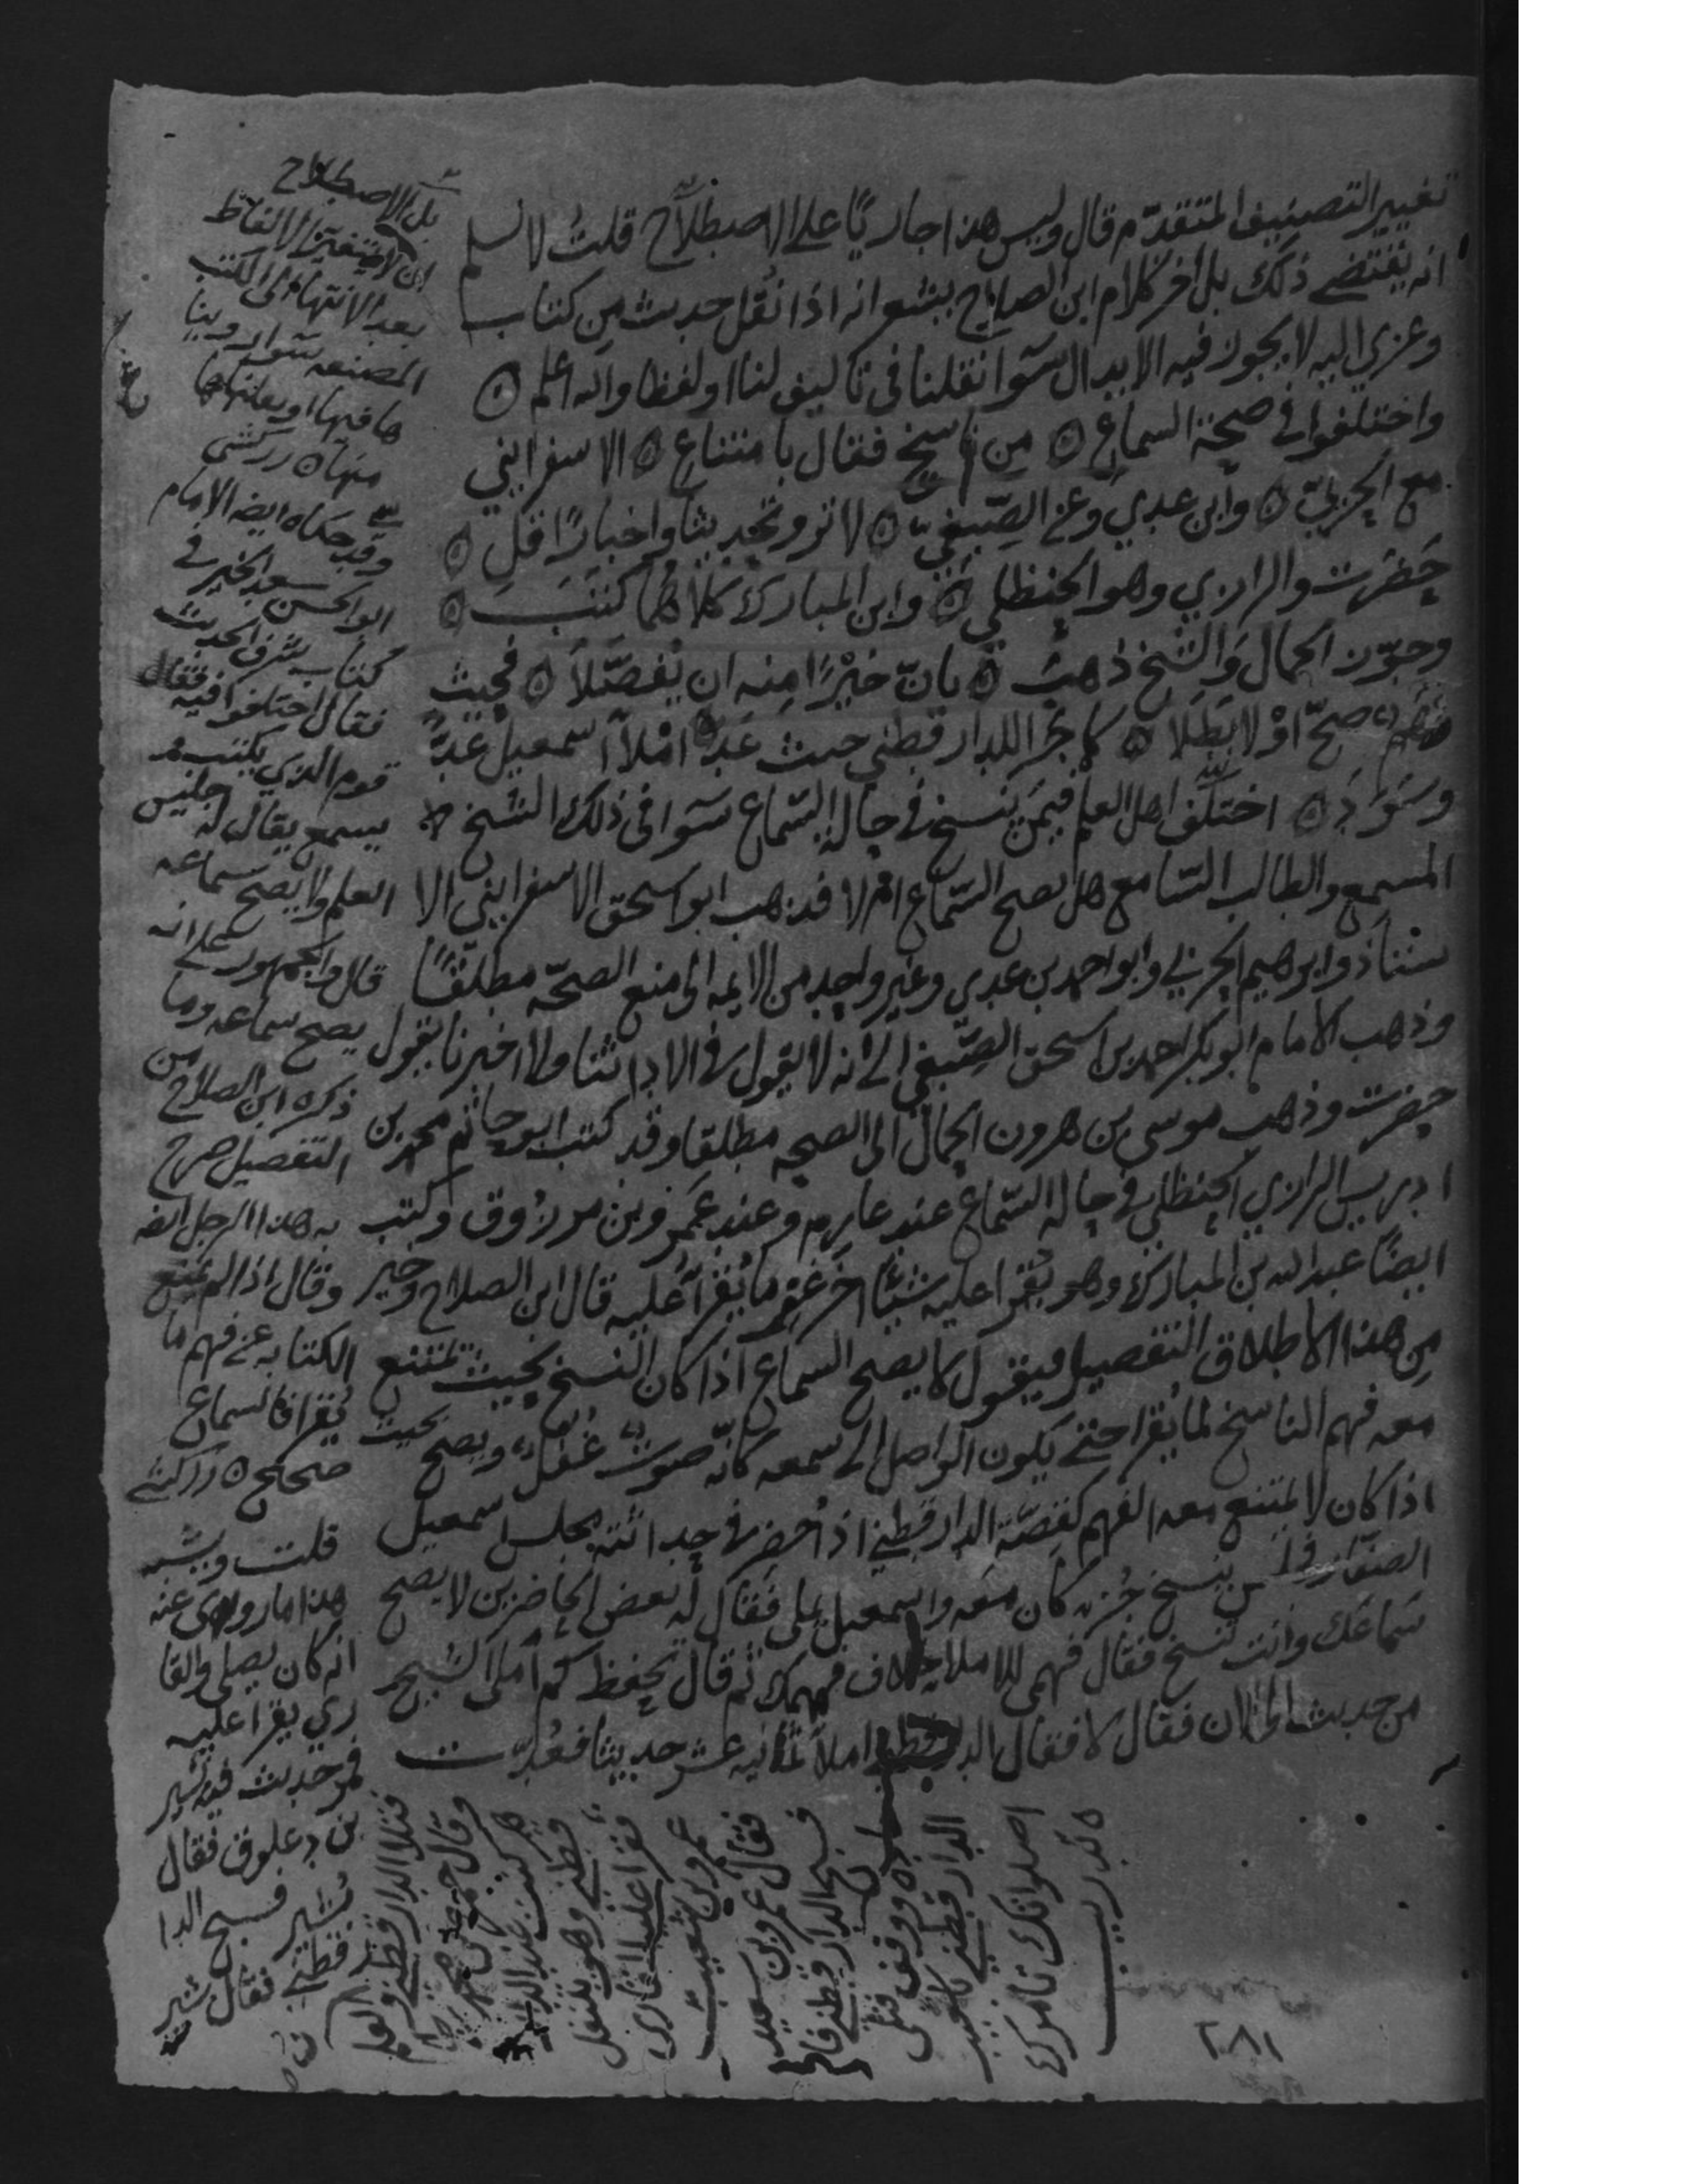 تغيير التصنيف المتقدم قال وليس هذا جاريًا على الاصطلاح قلت لا نسلم
انه يقتضي ذلك بل اخر كلام ابن الصلاح يشعر انه اذا نقل حديث من كتاب
وعزي اليه لا يجوز فيه الابدال سوا نقلنا في تاليف لنا او لفظا والله اعلم ۞
واختلفوا في صحة السماع ۞ من ناسخ فقال بامتناع ۞ الاسفرايني
مع الحربي ۞ وابن عدي وعن الصبغي ۞ لا ترو تحديثا واخبارًا قل ۞
حضرت والرازي وهو الحنظلي ۞ وابن المبارك كلاهما كتب ۞
وجوز الحمال والشيخ ذهب ۞ بان خيرًا منه ان يفصلا ۞ فحيث
فهم صح او لا بطلا ۞ كما جرا للدارقطني حيث عد ۞ املا اسمعيل عدًّا
وسرد ۞ اختلف اهل العلم فيمن ينسخ في حالة السماع سوا في ذلك الشيخ
المسمع والطالب السامع هل يصح السماع ام لا فذهب ابو اسحق الاسفرايني الا
ستاذ وابرهيم الحربي وابو احمد بن عدي وغير واحد من الايمه الى منع الصحه مطلقًا
وذهب الامام ابو بكر احمد بن اسحق الصبغي الى انه لا يقول في الادا ثنا ولا اخبرنا بقول
حضرت وذهب موسى بن هرون الحمال الى الصحه مطلقا وقد كتب ابو حاتم محمد بن
ادريس الرازي الحنظلي في حاله السماع عند عارم وعند عمرو بن مرزوق وكتب
ايضًا عبد الله بن المبارك وهو يقرا عليه شيئًا اخر غير ما يقرا عليه قال ابن الصلاح وخير
من هذا الاطلاق التفصيل فيقول لا يصح السماع اذا كان النسخ بحيث يمتنع
معه فهم الناسخ لما يقرا حتى يكون الواصل الى سمعه كانه صوت غفل ويصح بحيث
اذا كان لا يمتنع معه الفهم كقصة الدارقطني اذ حضر في حداثته مجلس اسمعيل
الصفار فجلس ينسخ جزء كان معه واسمعيل يملي فقال له بعض الحاضرين لا يصح
سماعك وانت تنسخ فقال فهمي للاملا خلاف فهمك ثم قال تحفظ كم املى الشيخ
من حديث الى الان فقال لا فقال الدارقطني املا ثمانيه عشر حديثا فعدت
بل الاصطلاح
ان لا تغير الالفاظ
بعد الانتهاء الى الكتب
المصنفه سوا روينا
ها فيها او نقلناها
منها ۞ زركشي
وقد حكاه ايضا الامام
ابو الحسن سعد الخير في
كتاب شرف الحديث
فقال اختلفوا فيه فقال
قوم الذي يكتب و
يسمع يقال له جليس
العلم ولا يصح سماعه
قال والجمهور على انه
يصح سماعه وما
ذكره ابن الصلاح من
التفصيل صرح
به هذا الرجل ايضا
وقال اذا لم تمنع
الكتابه عن فهم ما
يقرا فالسماع
صحيح ۞ زركشي
قلت ويشبه
هذا ما روي عنه
انه كان يصلي والقا
ري يقرا عليه
فمر حديث فيه نسير
بن ذعلوق فقال
بشير فسبح الدا
رقطني فقال بشير
فتلا الدارقطني ن والقلم
وقال حمزه بن محمد
كنت عند الدار
قطني وهو يتنفل
فقرا عليه القاري
عمرو بن شعيب
فقال عمرو بن سعيد
فسبح الدارقطني فا
عاده ووقف فتلى
الدارقطني يا شعيب
اصلواتك تامرك
۞ تدريب
٢٨١